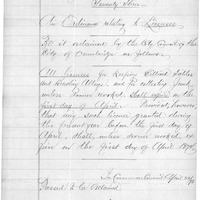 An Ordinance relating to Licenses
Be it ordained by the City Council of the
City of Cambridge as follows
All licenses for keeping Billiard Tables
and Bowling Alleys, and for collecting Junk,
unless sooner revoked, shall expire on the
first day of April. Provided, however
that any such license granted during
the present year before the first day of
April, shall, unless sooner revoked, ex-
pire on the first day of April 1870.
In Common Council April
Passed to be Ordained